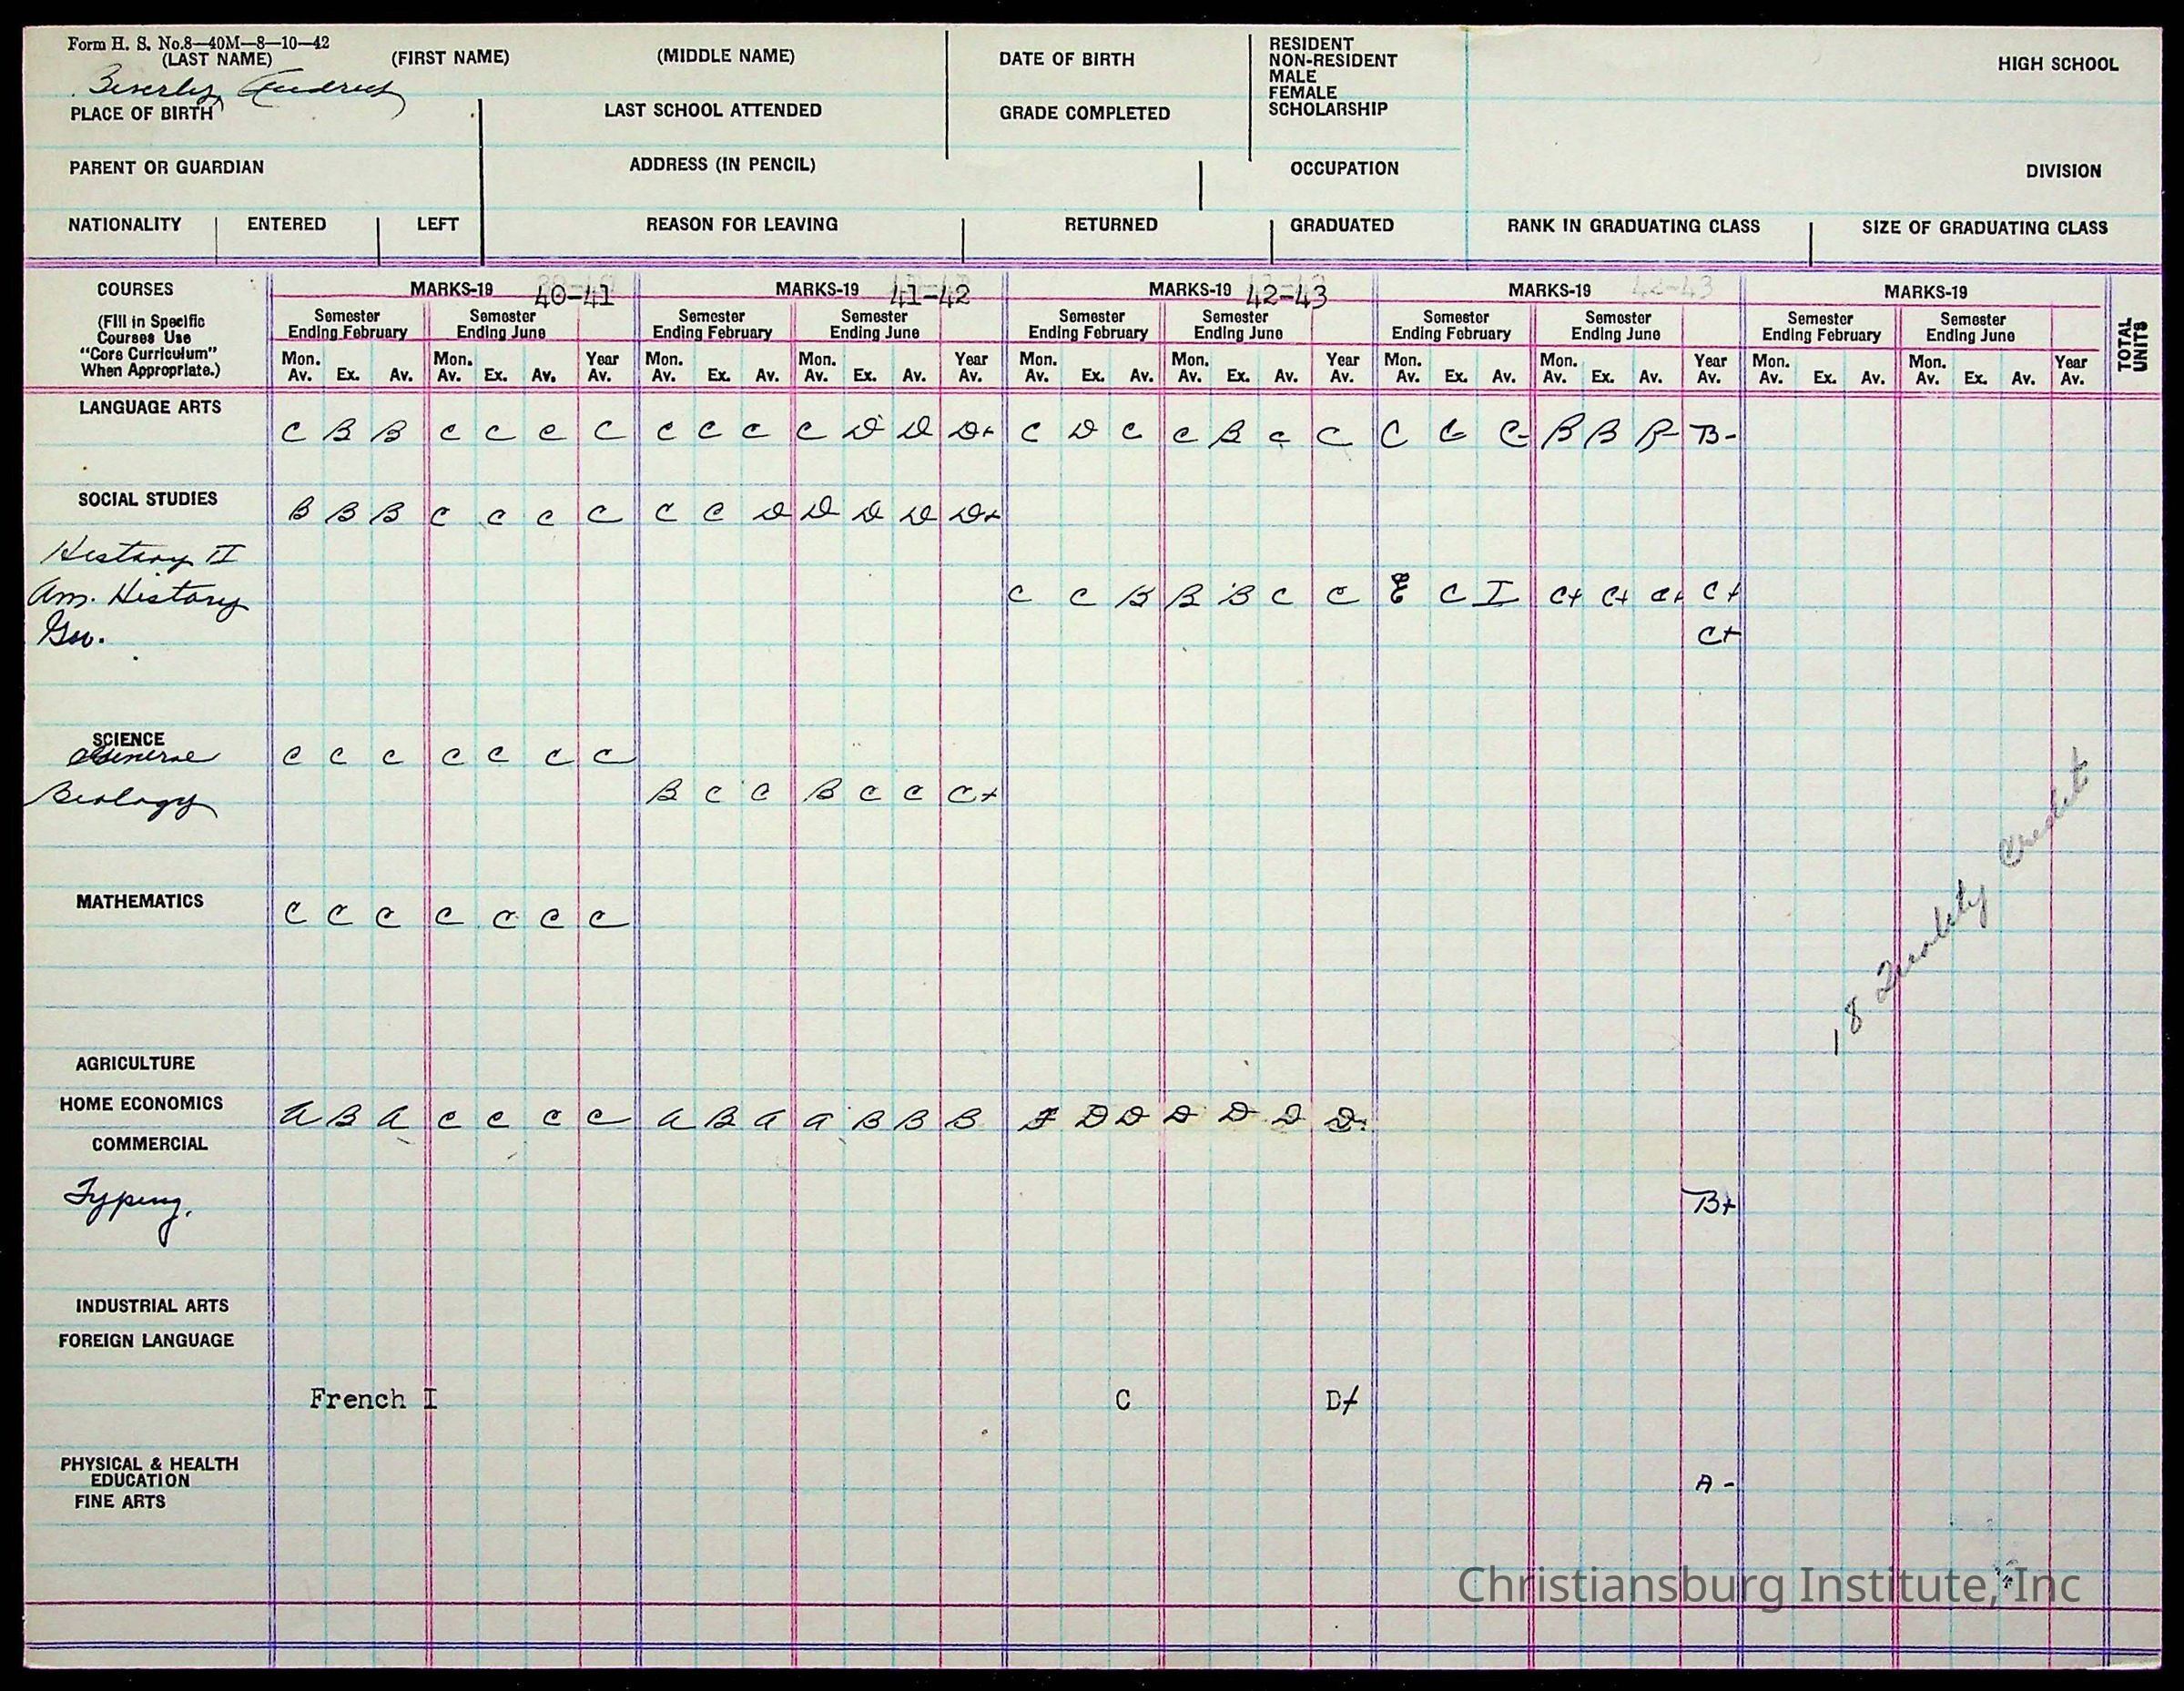 Form H. S. No.8—40M—8—10—42
(LAST NAME) (FIRST NAME) (MIDDLE NAME) DATE OF BIRTH RESIDENT
NON-RESIDENT
MALE
FEMALE
SCHOLARSHIP
HIGH SCHOOL
Beverly,
PLACE OF BIRTH LAST SCHOOL ATTENDED GRADE COMPLETED
PARENT OR GUARDIAN ADDRESS (IN PENCIL) OCCUPATION DIVISION
NATIONALITY ENTERED LEFT REASON FOR LEAVING RETURNED GRADUATED RANK IN GRADUATING CLASS SIZE OF GRADUATING CLASS
COURSES MARKS-19 40-41 MARKS-19 41-42 MARKS-19 42-43 MARKS-19 42-43 MARKS-19
(Fill in Specific
Courses Use
"Core Curriculum"
When Appropriate.)
Semester Semester Semester Semester Semester Semester Semester Semester Semester Semester
Ending February Ending June Ending February Ending June Ending February Ending June Ending February Ending June Ending February Ending June
Mon. Mon. Year Mon. Mon. Year Mon. Mon. Year Mon. Mon. Year Mon. Mon. Year
Av. Ex. Av. Av. Ex. Av. Av. Av. Ex. Av. Av. Ex. Av. Av. Av. Ex. Av. Av. Ex. Av. Av. Av. Ex. Av. Av. Ex. Av. Av. Av. Ex. Av. Av. Ex. Av. Av.
TOTAL UNITS
LANGUAGE ARTS
C B B C C C C C C C C D D D+ C D C C B C C C C C- B B B- B-
SOCIAL STUDIES
B B B C C C C C C D D D D D+
History II
Am. History C C B B B C C E C I C+ C+ C+ C+
Gov. C+
SCIENCE
General C C C C C C C
Biology B C C B C C C+
MATHEMATICS
C C C C C C C
18 Quality Credits
AGRICULTURE
HOME ECONOMICS A B A C C C C A B A A B B B F D D D D D D
COMMERCIAL
Typing. B+
INDUSTRIAL ARTS
FOREIGN LANGUAGE
French I C D/
PHYSICAL & HEALTH
EDUCATION A -
FINE ARTS
Christiansburg Institute, Inc